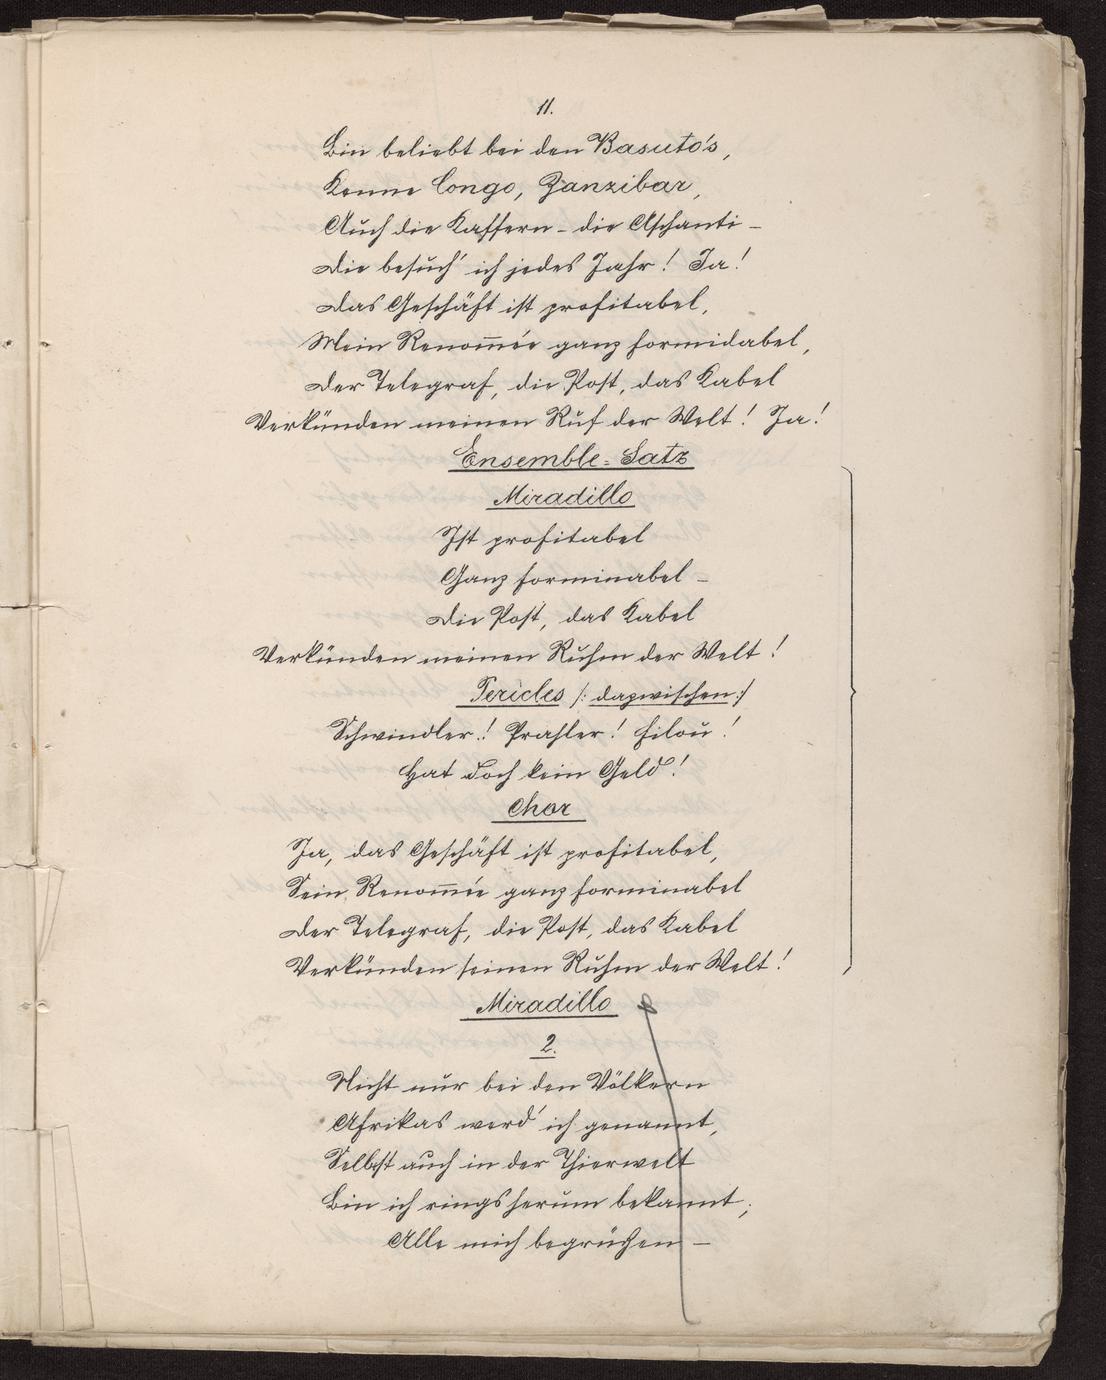 11.
Bin beliebt bei den Basuto's,
Kenne Congo, Zanzibar,
Auch die Kaffern – die Aschanti –
Die besuch' ich jedes Jahr! Ja!
Das Geschäft ist profitabel,
Mein Renom̅ée ganz formidabel,
Der Telegraf, die Post, das Kabel
Verkünden meinen Ruf der Welt! Ja!
Ensemble-Satz
Miradillo
Ist profitabel
Ganz forminabel –
Die Post, das Kabel
Verkünden meinen Ruhm der Welt!
Pericles /: dazwischen :/
Schwindler! Prahler! Filou!
Hat doch kein Geld!
Chor
Ja, das Geschäft ist profitabel,
Sein Renom̅ée ganz forminabel
Der Telegraf, die Post, das Kabel
Verkünden seinen Ruhm der Welt!
Miradillo
2.
Nicht nur bei den Völkern
Afrikas werd' ich genannt,
Selbst auch in der Thierwelt
Bin ich ringsherum bekannt;
Alle mich begrüßen –